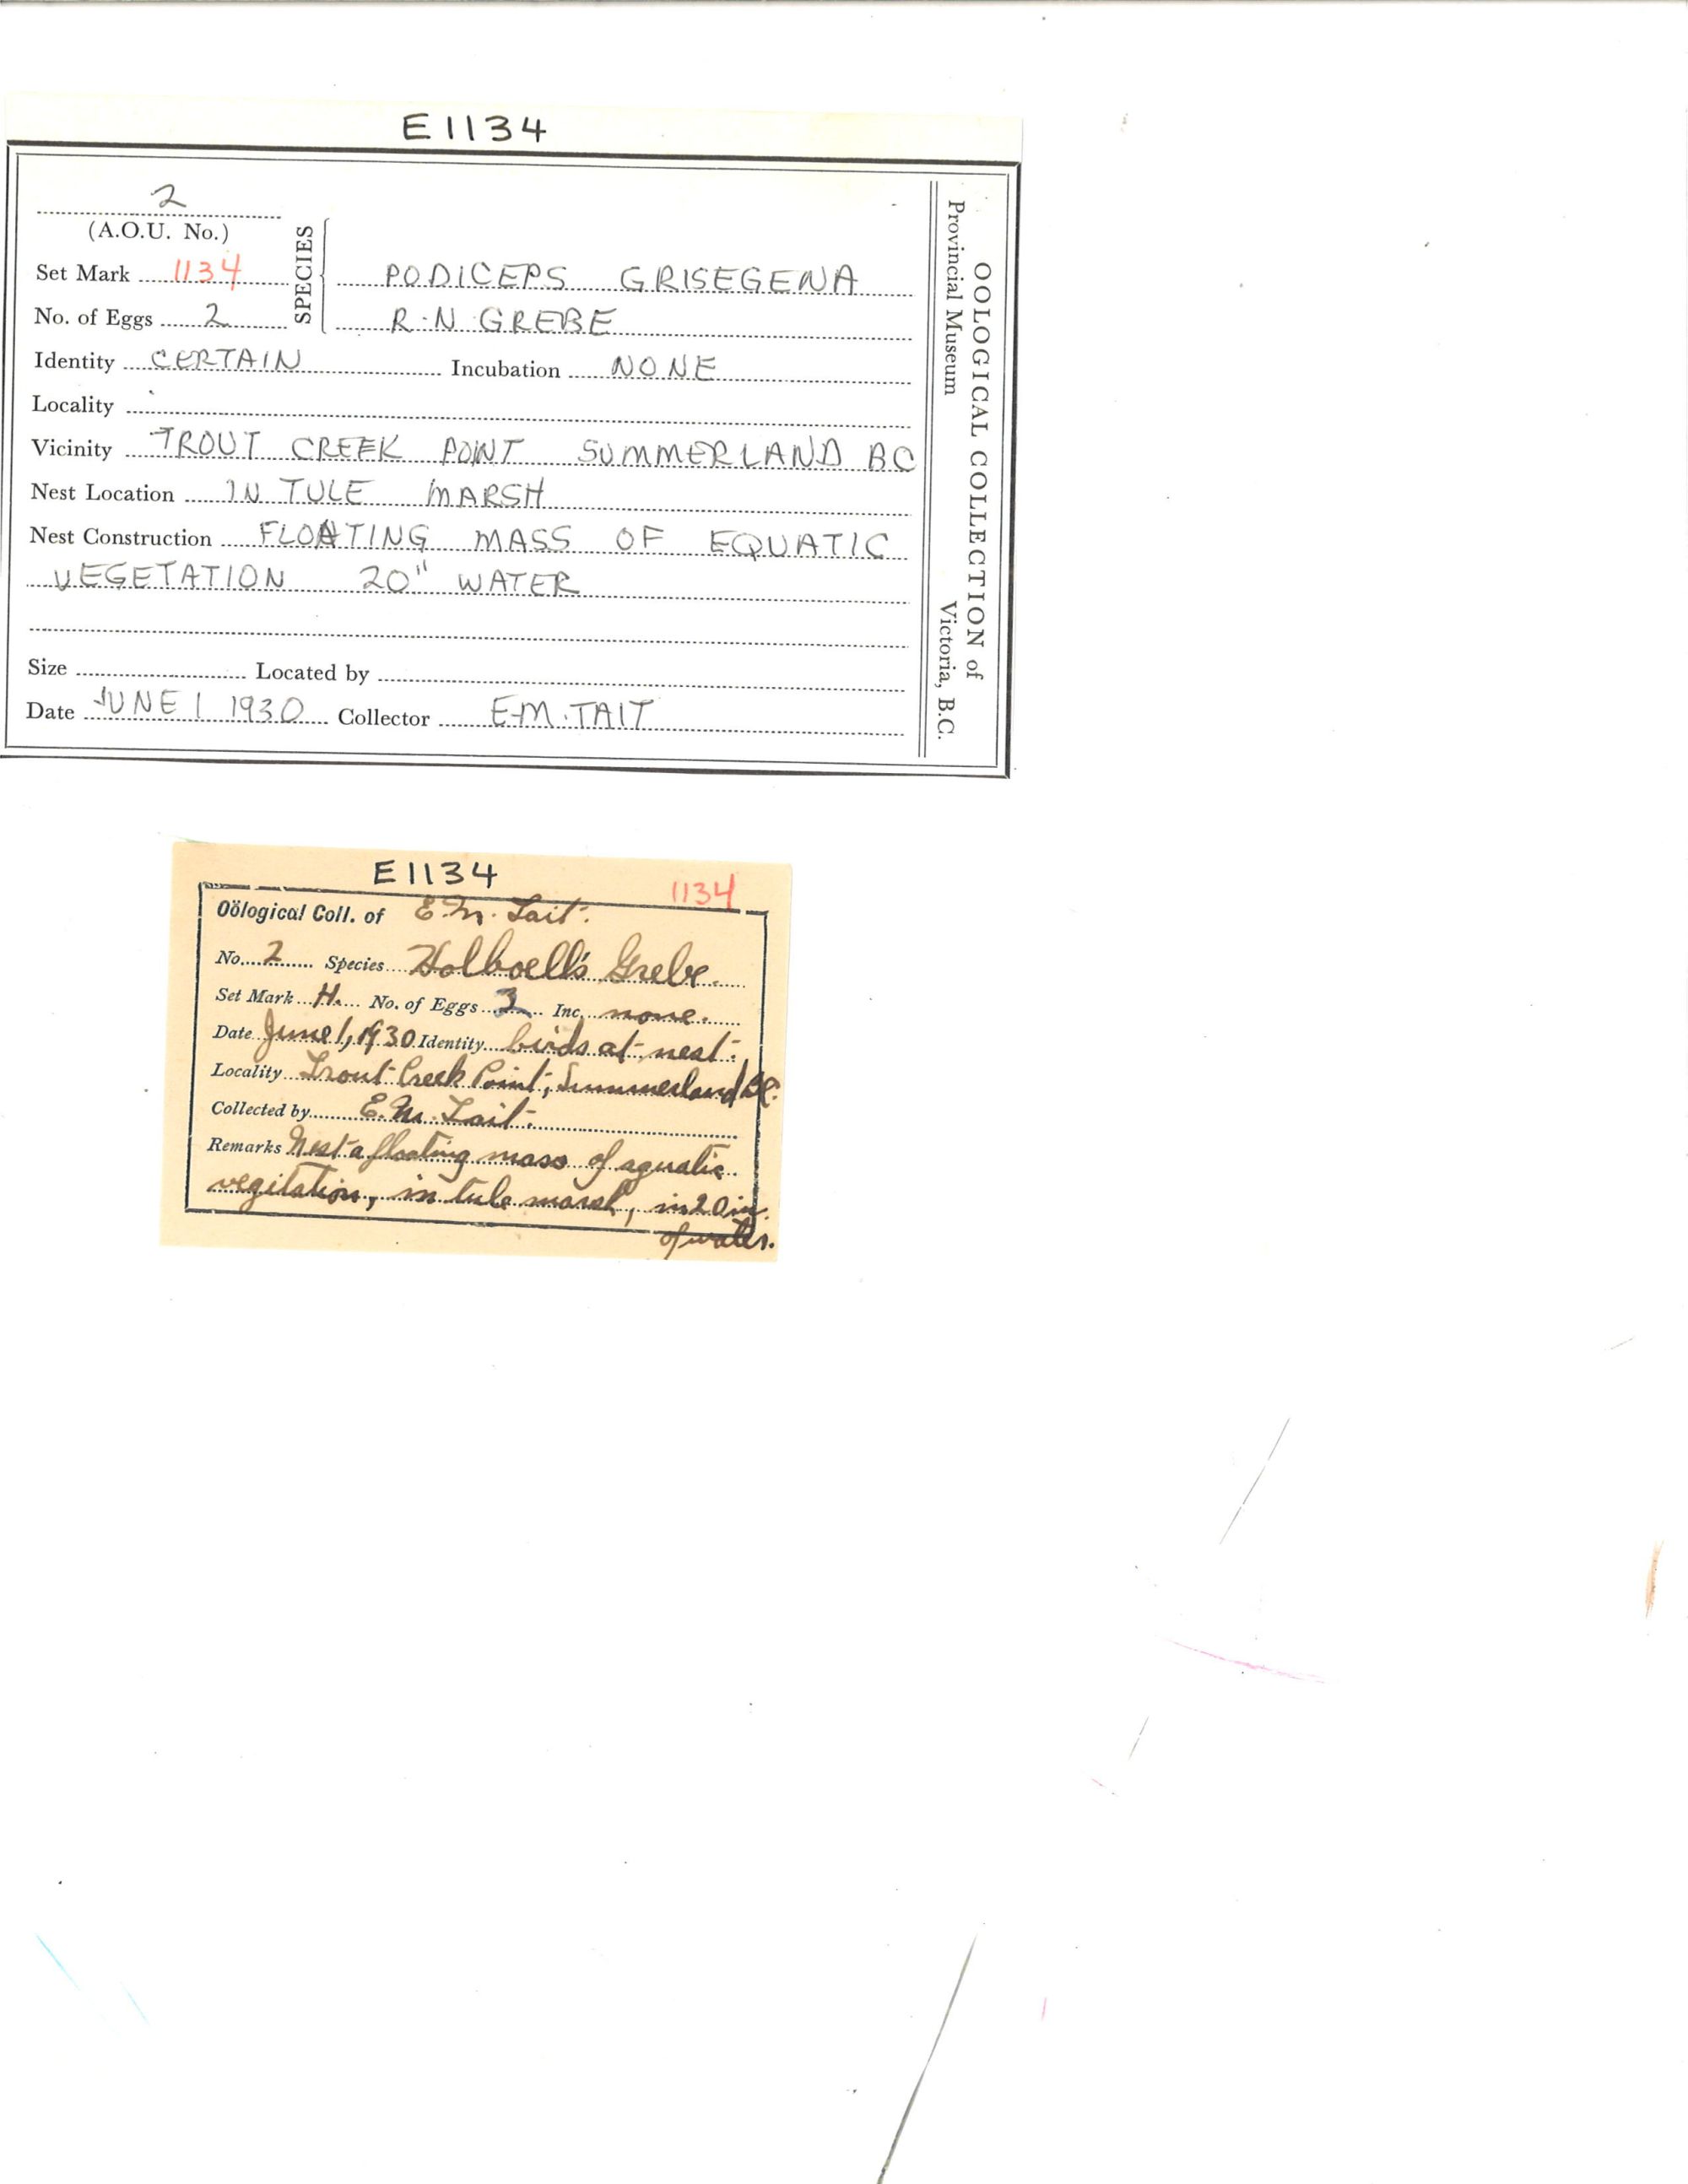 E1134
2
(A.O.U. No.)
SPECIES
Set Mark 1134
PODICEPS GRISEGENA
No. of Eggs 2
R.N. GREBE
Identity CERTAIN Incubation NONE
Locality
Vicinity TROUT CREEK POINT SUMMERLAND BC
Nest Location IN TULE MARSH
Nest Construction FLOATING MASS OF EQUATIC
VEGETATION 20" WATER
Size Located by
Date JUNE 1 1930 Collector E.M. TAIT
OOLOGICAL COLLECTION of
Provincial Museum Victoria, B.C.
E1134
1134
Oölogical Coll. of E. M. Tait.
No. 2 Species Holboell's Grebe.
Set Mark H. No. of Eggs Inc. none.
Date June 1, 1930 Identity birds at nest.
Locality Trout Creek Point, Summerland BC.
Collected by E. M. Tait.
Remarks Nest a floating mass of aquatic
vegitation, in tule marsh, in 20 in.
of water.